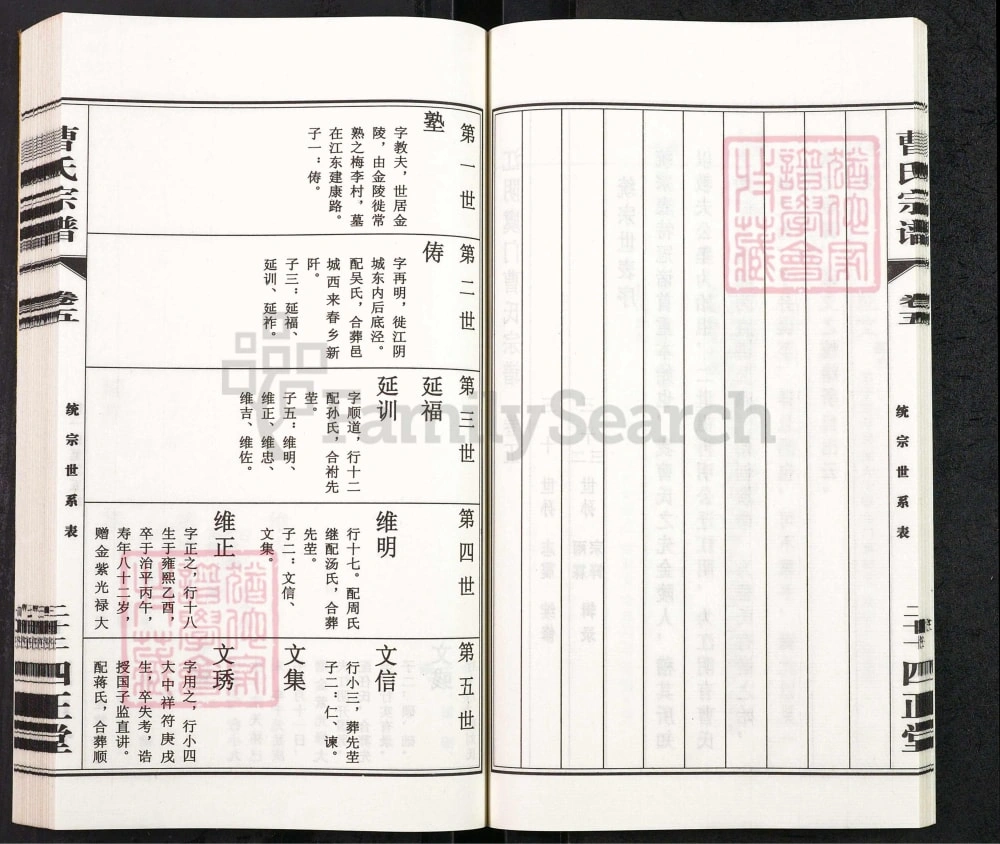 曹氏宗谱
卷五
统宗世系表
四正堂
第一世
塾
字教夫，世居金
陵，由金陵徙常
熟之梅李村，墓
在江东建康路。
子一：俦。
第二世
俦
字再明，徙江阴
城东内后底泾。
配吴氏，合葬邑
城西来春乡新
阡。
子三：延福、
延训、延祚。
第三世
延福
延训
字顺道，行十二
配孙氏，合祔先
茔。
子五：维明、
维正、维忠、
维吉、维佐。
第四世
维明
行十七。配周氏
继配汤氏，合葬
先茔。
子二：文信、
文集。
维正
字正之，行十八
生于雍熙乙酉，
卒于治平丙午，
寿年八十二岁，
赠金紫光禄大
第五世
文信
行小三，葬先茔
子二：仁、谏。
文集
文琇
字用之，行小四
大中祥符庚戌
生，卒失考，诰
授国子监直讲。
配蒋氏，合葬顺
曹氏宗谱
卷五
统宗世系表
四正堂
FamilySearch